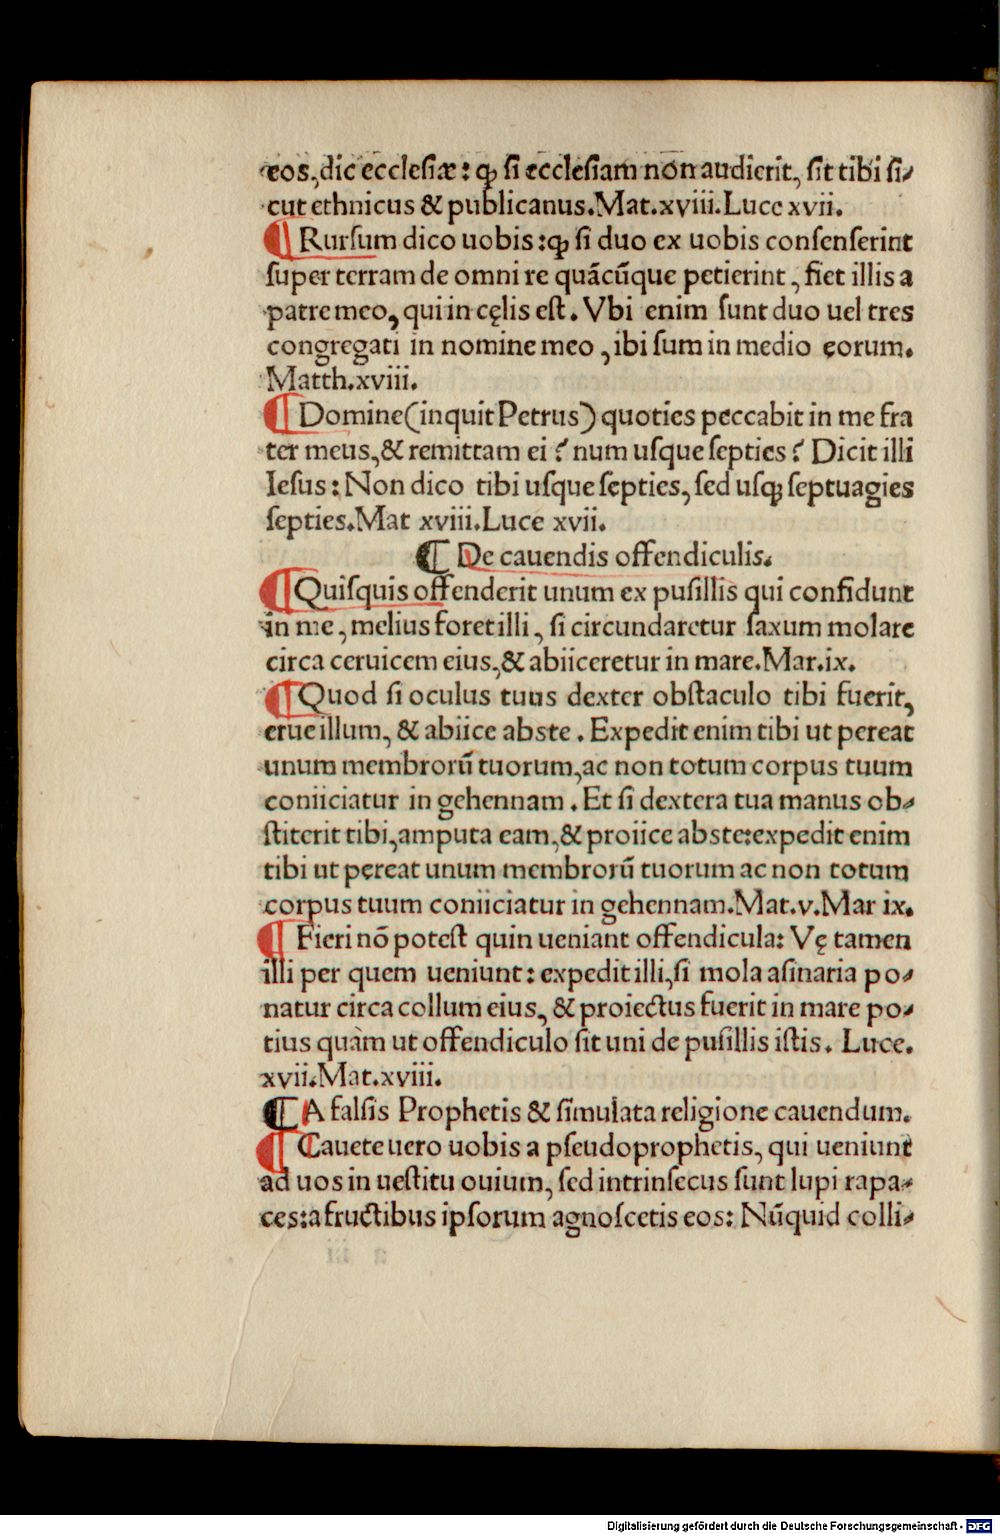 eos, dic ecclesiæ: ꝙ si ecclesiam non audierit, sit tibi si⸗
cut ethnicus & publicanus. Mat. xviii. Luce xvii.
¶ Rursum dico uobis: ꝙ si duo ex uobis consenserint
super terram de omni re quãcũque petierint, fiet illis a
patre meo, qui in cęlis est. Vbi enim sunt duo uel tres
congregati in nomine meo, ibi sum in medio eorum.
Matth. xviii.
¶ Domine (inquit Petrus) quoties peccabit in me fra
ter meus, & remittam ei? num usque septies? Dicit illi
Iesus: Non dico tibi usque septies, sed usqꝫ septuagies
septies. Mat xviii. Luce xvii.
¶ De cauendis offendiculis.
¶ Quisquis offenderit unum ex pusillis qui confidunt
in me, melius foret illi, si circundaretur saxum molare
circa ceruicem eius, & abiiceretur in mare. Mar. ix.
¶ Quod si oculus tuus dexter obstaculo tibi fuerit,
erue illum, & abiice abs te. Expedit enim tibi ut pereat
unum membrorũ tuorum, ac non totum corpus tuum
coniiciatur in gehennam. Et si dextera tua manus ob⸗
stiterit tibi, amputa eam, & proiice abs te: expedit enim
tibi ut pereat unum membrorũ tuorum ac non totum
corpus tuum coniiciatur in gehennam. Mat. v. Mar ix.
¶ Fieri nõ potest quin ueniant offendicula: Vę tamen
illi per quem ueniunt: expedit illi, si mola asinaria po⸗
natur circa collum eius, & proiectus fuerit in mare po⸗
tius quàm ut offendiculo sit uni de pusillis istis. Luce.
xvii. Mat. xviii.
¶ A falsis Prophetis & simulata religione cauendum.
¶ Cauete uero uobis a pseudoprophetis, qui ueniunt
ad uos in uestitu ouium, sed intrinsecus sunt lupi rapa⸗
ces: a fructibus ipsorum agnoscetis eos: Nũquid colli⸗
Digitalisierung gefördert durch die Deutsche Forschungsgemeinschaft - DFG